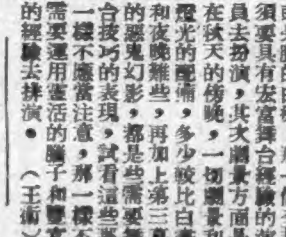 須要具有宏富舞台經驗的演
員去扮演，其次劇景方面是
在秋天的傍晚，一切劇景和
燈光的配備，多少較比白
和夜晚難些，再加上第三幕
的惡鬼幻影，都是些需要
合技巧的表現，試看這些
一樣不應當注意，那一樣不
需要運用靈活的腦子和豐富
的經驗去排演。（王術）